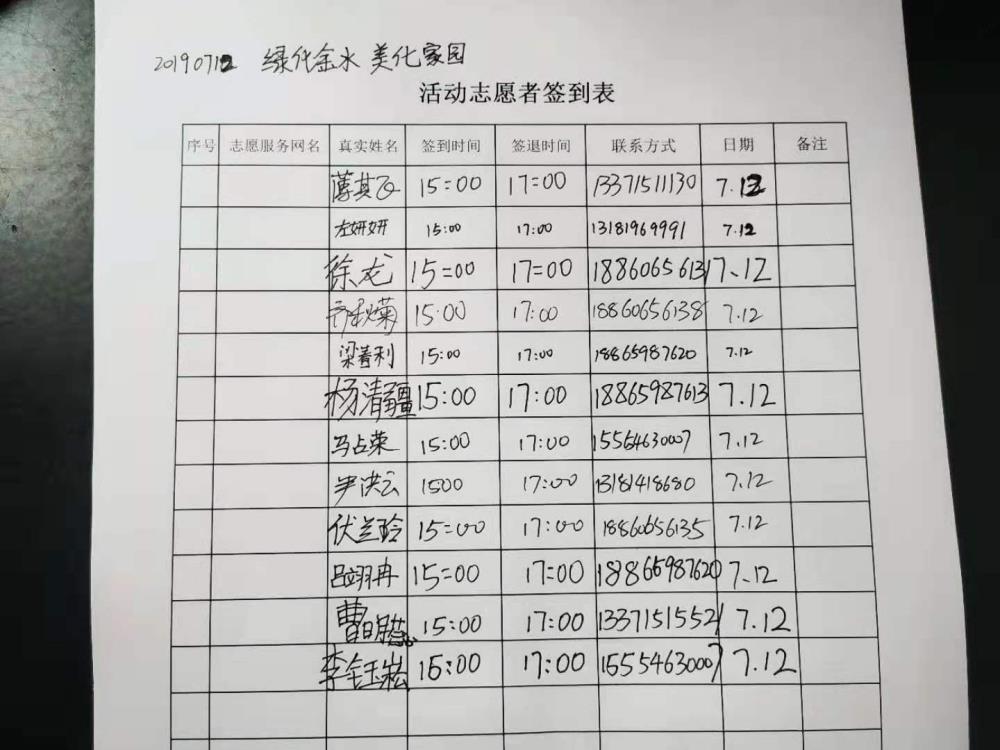 20190712 绿化金水 美化家园
活动志愿者签到表
序号 志愿服务网名 真实姓名 签到时间 签退时间 联系方式 日期 备注
薄其飞 15:00 17:00 13371511130 7.12
左妍妍 15:00 17:00 13181969991 7.12
徐龙 15:00 17:00 18860656131 7.12
乔秋菊 15:00 17:00 18860656138 7.12
梁普利 15:00 17:00 18865987620 7.12
杨清疆 15:00 17:00 18865987613 7.12
马占荣 15:00 17:00 15554630007 7.12
尹洪云 1500 17:00 13181418680 7.12
伏兰玲 15:00 17:00 18860656135 7.12
吕翊冉 15:00 17:00 18865987620 7.12
曹 15:00 17:00 13371515521 7.12
李钰崧 15:00 17:00 15554630007 7.12